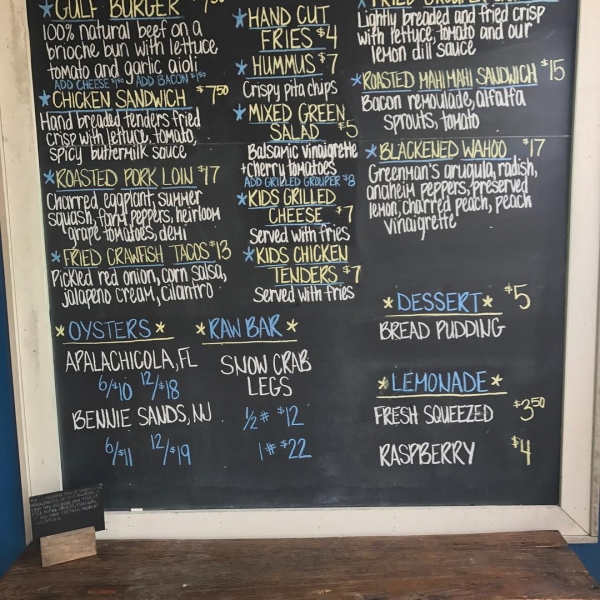 ★GULF BURGER
100% natural beef on a
brioche bun with lettuce
tomato and garlic aioli
ADD CHEESE ADD BACON
★CHICKEN SANDWICH $7.50
Hand breaded tenders fried
crisp with lettuce, tomato,
spicy buttermilk sauce
★ROASTED PORK LOIN $17
Charred eggplant, summer
squash, peppers, heirloom
grape tomatoes, demi
★FRIED CRAWFISH TACOS $13
Pickled red onion, corn salsa,
jalapeno cream, cilantro
★HAND CUT
FRIES $4
★HUMMUS $7
Crispy pita chips
★MIXED GREEN
SALAD $5
Balsamic vinaigrette
+cherry tomatoes
ADD GRILLED GROUPER $8
★KIDS GRILLED
CHEESE $7
Served with fries
★KIDS CHICKEN
TENDERS $7
Served with fries
Lightly breaded and fried crisp
with lettuce, tomato and our
lemon dill sauce
★ROASTED MAHI MAHI SANDWICH $15
Bacon remoulade, alfalfa
sprouts, tomato
★BLACKENED WAHOO $17
Greenman's arugula, radish,
anaheim peppers, preserved
lemon, charred peach, peach
vinaigrette
★OYSTERS★
APALACHICOLA, FL
6/$10 12/$18
BENNIE SANDS, NJ
6/$11 12/$19
★RAW BAR★
SNOW CRAB
LEGS
½# $12
1# $22
★DESSERT★ $5
BREAD PUDDING
★LEMONADE★
FRESH SQUEEZED $3.50
RASPBERRY $4